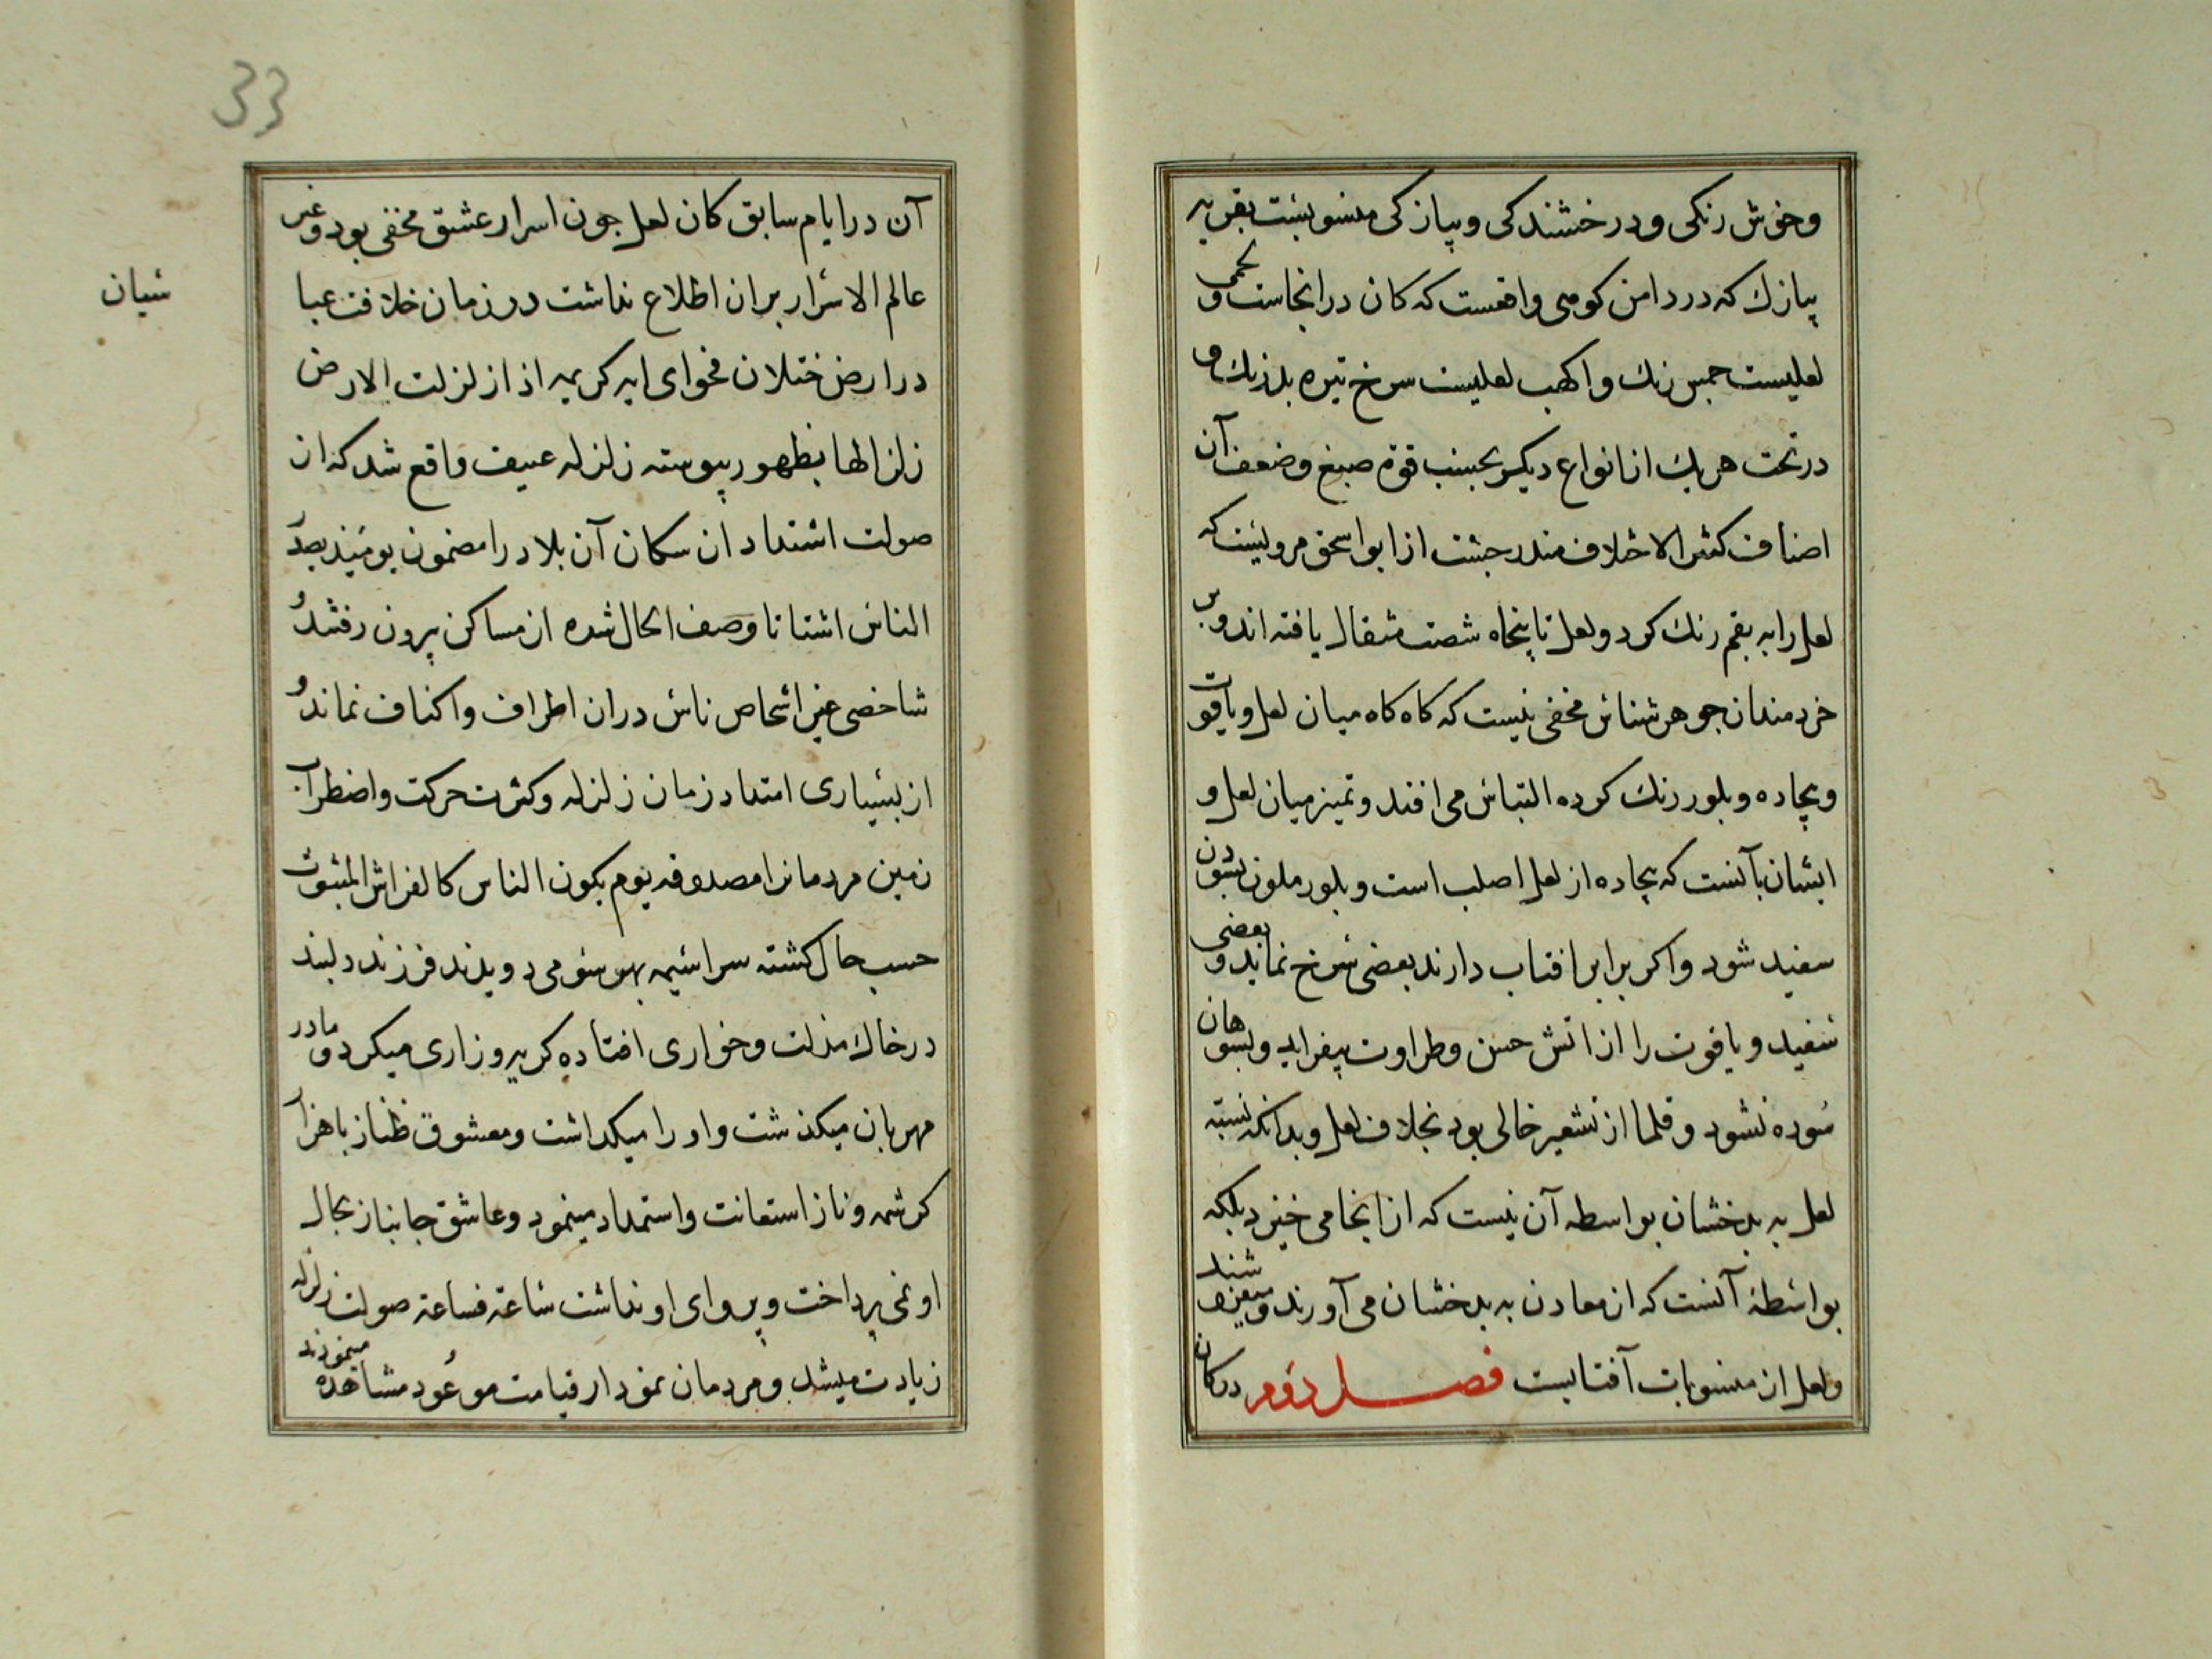 وخوش رنكى ودرخشندكى وپيازكى منسوبست بقريه
پيازك كه در دامن كوهى واقعست كه كان درانجاست ولحمى
لعليست جمس رنك واكهب لعليست سرخ تيره بدرنك و
در تحت هريك از انواع ديكر بحسب قوة صبغ وضعف آن
اصناف كثير الاختلاف مندرجست از ابو اسحق مرويست كه
لعل را به بقم رنك كرد ولعل تا پنجاه شصت مثقال يافته اند وبر
خردمندان جوهر شناس مخفى نيست كه كاه كاه ميان لعل وياقوت
وبيجاده وبلور رنك كرده التباس مى افتد وتميز ميان لعل و
ايشان بآنست كه بيجاده از لعل اصلب است وبلور ملون بسودن
سفيد شود واكر برابر افتاب دارند بعضى سرخ نمايد وبعضى
سفيد وياقوت را از اتش حسن وطراوت بيفزايد وبسوهان
سوده نشود وقلما از تشعير خالى بود بخلاف لعل وبدانكه نسبة
لعل به بدخشان بواسطه آن نيست كه از انجا مى خيزد بلكه
بواسطۀ آنست كه از معادن به بدخشان مى آورند وميفروشند
ولعل از منسوبات آفتابست فصل دوم در كان
33
آن در ايام سابق كان لعل جون اسرار عشق مخفى بود وغير
عالم الاسرار بران اطلاع نداشت در زمان خلافت عبا
سيان
در ارض ختلان فحواى ايه كريمه اذا زلزلت الارض
زلزالها بظهور پيوسته زلزله عنيف واقع شد كه از
صولت اشتداد ان سكان آن بلاد را مضمون يومئذ يصدر
الناس اشتاتا وصف الحال شده از مساكن بيرون رفتند و
شاخصى غير اشخاص ناس دران اطراف واكناف نماند و
از بسيارى امتداد زمان زلزله وكثرت حركت واضطراب
زمين مردمانرا مصدوقه يوم يكون الناس كالفراش المبثوث
حسب حال كشته سراسيمه بهر سو مى دويدند فرزند دلبند
در خاك مذلت وخوارى افتاده كريه وزارى ميكرد ومادر
مهربان ميكذشت واو را ميكذاشت ومعشوق طناز باهزار
كرشمه وناز استعانت واستمداد مينمود وعاشق جانباز بحال
او نمى پرداخت وپرواى او نداشت ساعة فساعة صولت زلزله
زيادت ميشد ومردمان نمودار قيامت موعود مشاهده مينمودند